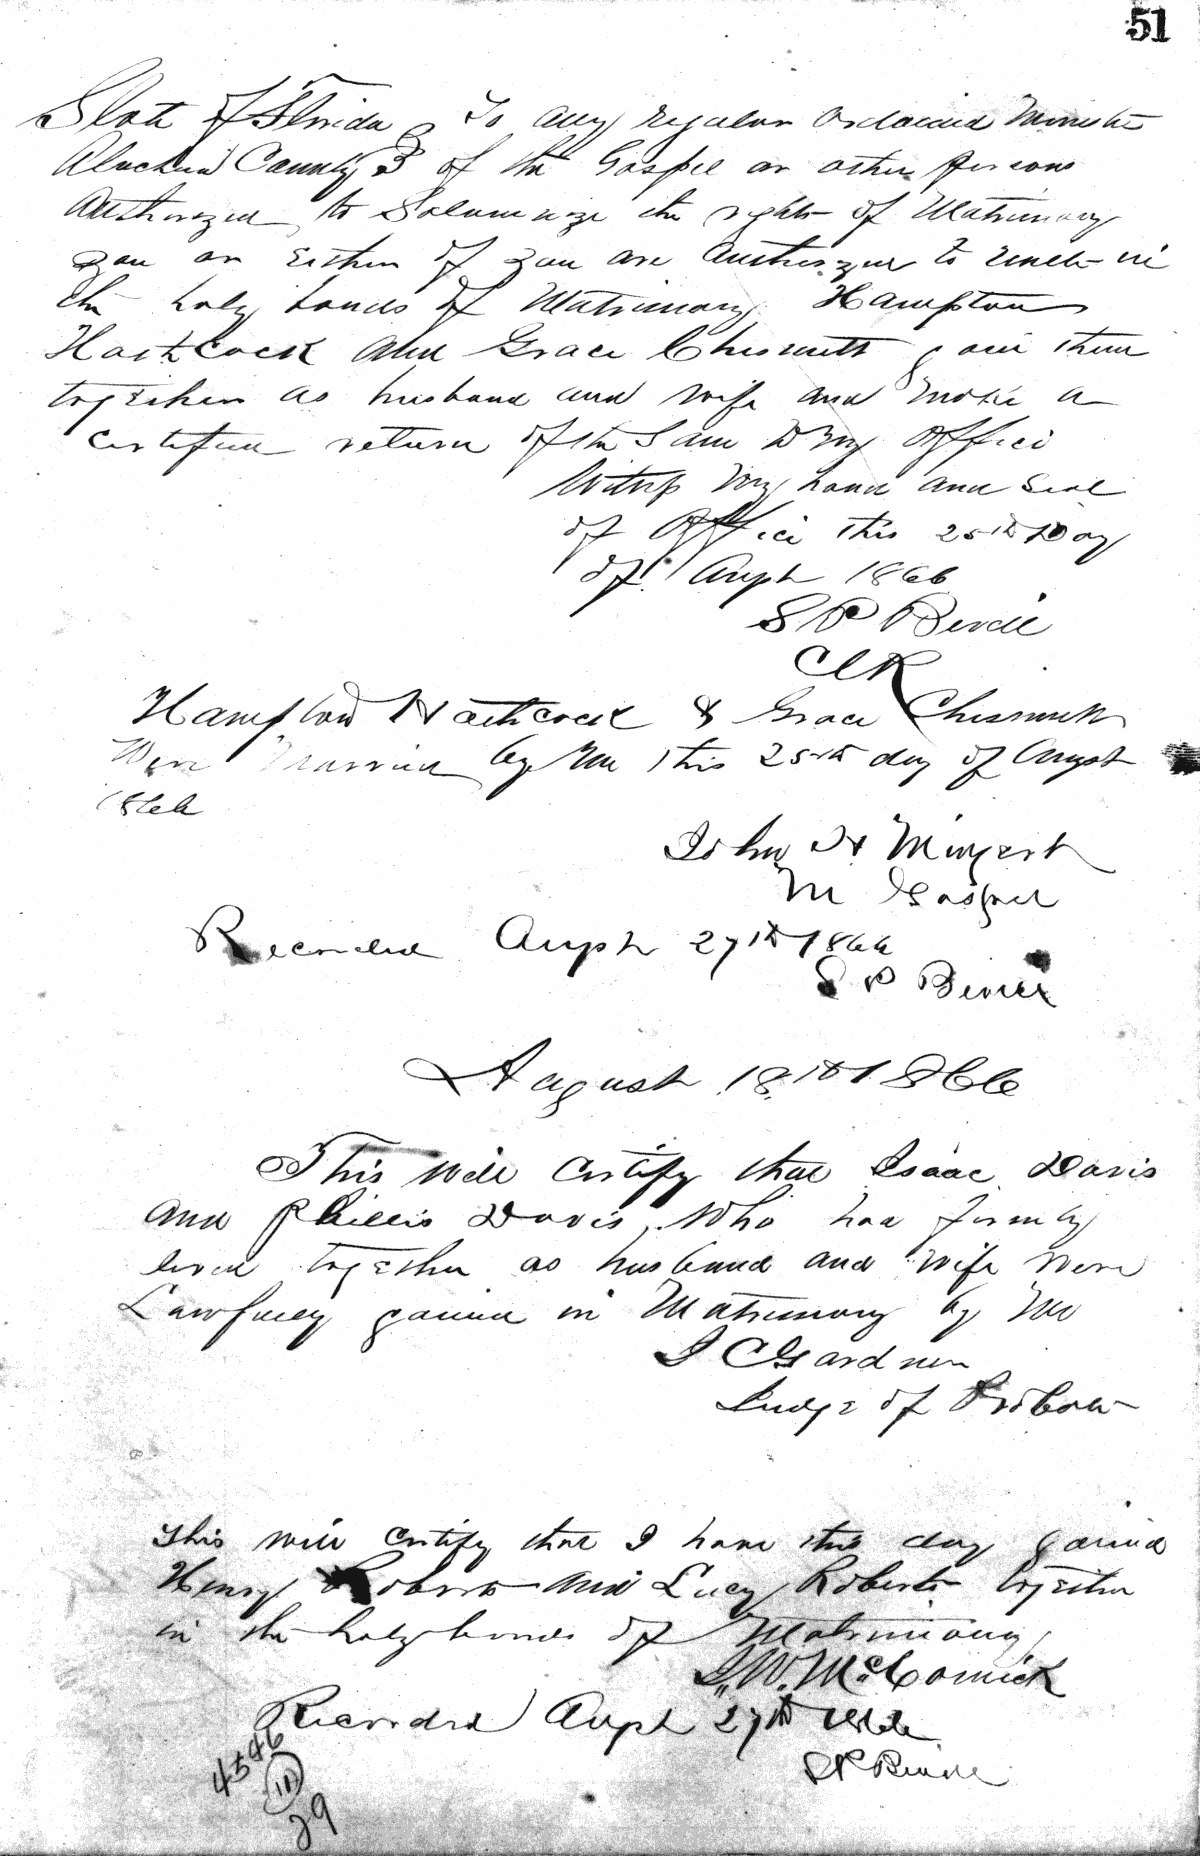 51
State of Florida } To any regular ordained Minister
Alachua County } of the Gospel or other persons
Authorized to Solemnize the rights of Matrimony
you or either of you are Authorized to unite in
the holy bonds of Matrimony Hampton
Hathcock and Grace Chesnutt join them
together as husband and wife and make a
certified return of the Same to my office
Witness my hand and Seal
of Office this 25th Day
of August 1866
S P
Clk
Hampton Hathcock & Grace Chesnutt
Were Married by Me this 25th day of August
1866
John H
M Gospel
Recorded August 27th 1866
S P
August 18th 1866
This will Certify that Isaac Davis
and Phillis Davis, Who had formerly
lived together as husband and wife were
Lawfully joined in Matrimony by Me
J C Gardner
Judge of Probate
This will certify that I have this day joined
Henry Roberts and Lucy Roberts together
in the holy bonds of Matrimony
J. W. McCormick
Recorded August 27th 1866
S P
4546
11
29